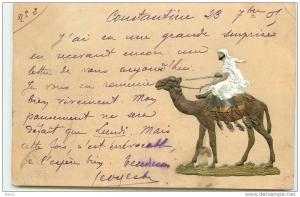 n° 3
Constantine 23 7bre 05
J'ai eu une grande surprise
en recevant encore une
lettre de vous aujourd'hui.
Je vous en remercie
bien vivement. Mon
pansement ne sera
défait que Lundi. Mais
cette fois, c'est irrévocable,
je l'espère bien.